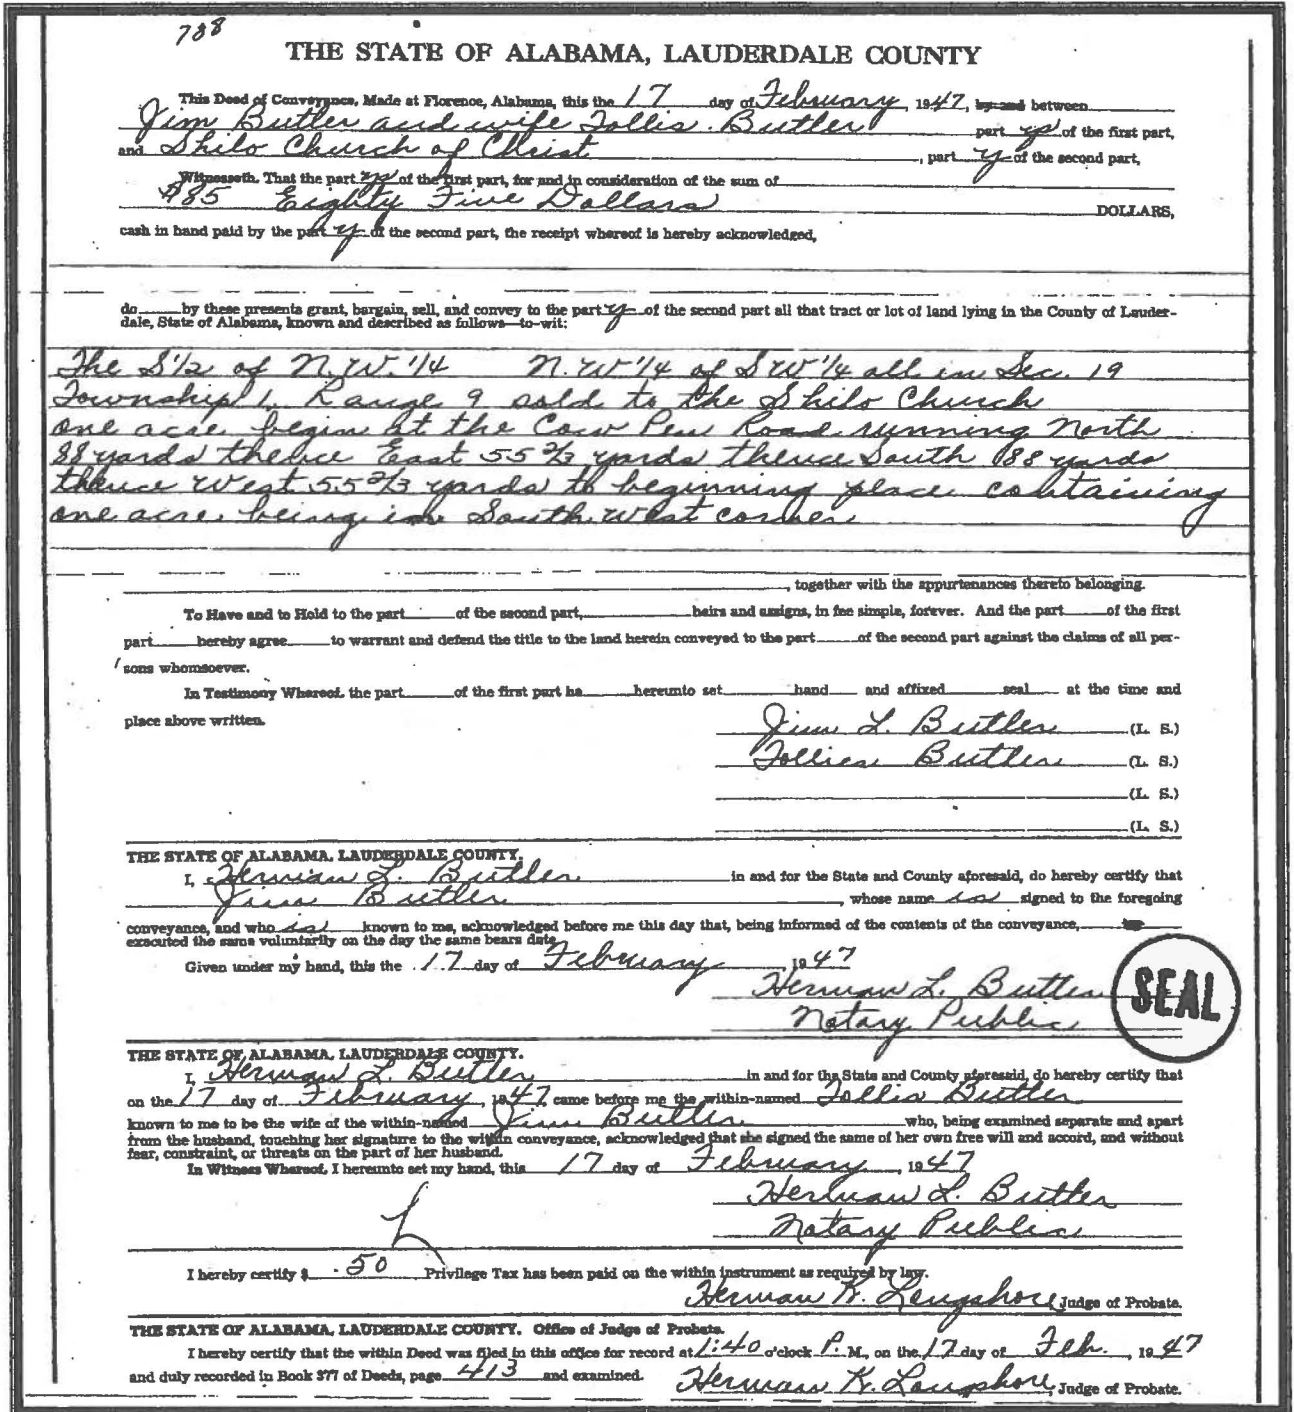 788
THE STATE OF ALABAMA, LAUDERDALE COUNTY
This Deed of Conveyance, Made at Florence, Alabama, this the 17 day of February, 1947, by and between
Jim Butler and wife Tollie Butler part y of the first part,
and Shilo Church of Christ, part y of the second part,
Witnesseth. That the part y of the first part, for and in consideration of the sum of
$85 Eighty Five Dollars DOLLARS,
cash in hand paid by the part y of the second part, the receipt whereof is hereby acknowledged,
do by these presents grant, bargain, sell, and convey to the part y of the second part all that tract or lot of land lying in the County of Lauder-
dale, State of Alabama, known and described as follows—to-wit:
The S 1/2 of N.W. 1/4 N.W 1/4 of S W 1/4 all in Sec. 19
Township 1, Range 9 sold to the Shilo Church
one acre begin at the Cow Pen Road running North
88 yards thence East 55 2/3 yards thence South 88 yards
thence West 55 2/3 yards to beginning place containing
one acre being in South West corner
, together with the appurtenances thereto belonging.
To Have and to Hold to the part of the second part, heirs and assigns, in fee simple, forever. And the part of the first
part hereby agree to warrant and defend the title to the land herein conveyed to the part of the second part against the claims of all per-
sons whomsoever.
In Testimony Whereof, the part of the first part ha hereunto set hand and affixed seal at the time and
place above written.
Jim L. Butler (L. S.)
Tollie Butler (L. S.)
(L. S.)
(L. S.)
THE STATE OF ALABAMA, LAUDERDALE COUNTY.
I, Herman L. Butler in and for the State and County aforesaid, do hereby certify that
Jim Butler, whose name is signed to the foregoing
conveyance, and who is known to me, acknowledged before me this day that, being informed of the contents of the conveyance, he
executed the same voluntarily on the day the same bears date.
Given under my hand, this the 17 day of February 1947
Herman L. Butler
Notary Public
SEAL
THE STATE OF ALABAMA, LAUDERDALE COUNTY.
I, Herman L. Butler in and for the State and County aforesaid, do hereby certify that
on the 17 day of February, 1947, came before me the within-named Tollie Butler
known to me to be the wife of the within-named Jim Butler who, being examined separate and apart
from the husband, touching her signature to the within conveyance, acknowledged that she signed the same of her own free will and accord, and without
fear, constraint, or threats on the part of her husband.
In Witness Whereof, I hereunto set my hand, this 17 day of February, 1947
Herman L. Butler
Notary Public
I hereby certify $ .50 Privilege Tax has been paid on the within instrument as required by law.
Herman K. Longshore, Judge of Probate.
THE STATE OF ALABAMA, LAUDERDALE COUNTY. Office of Judge of Probate.
I hereby certify that the within Deed was filed in this office for record at 1:40 o'clock P. M., on the 17 day of Feb. , 1947
and duly recorded in Book 377 of Deeds, page 413 and examined. Herman K. Longshore, Judge of Probate.